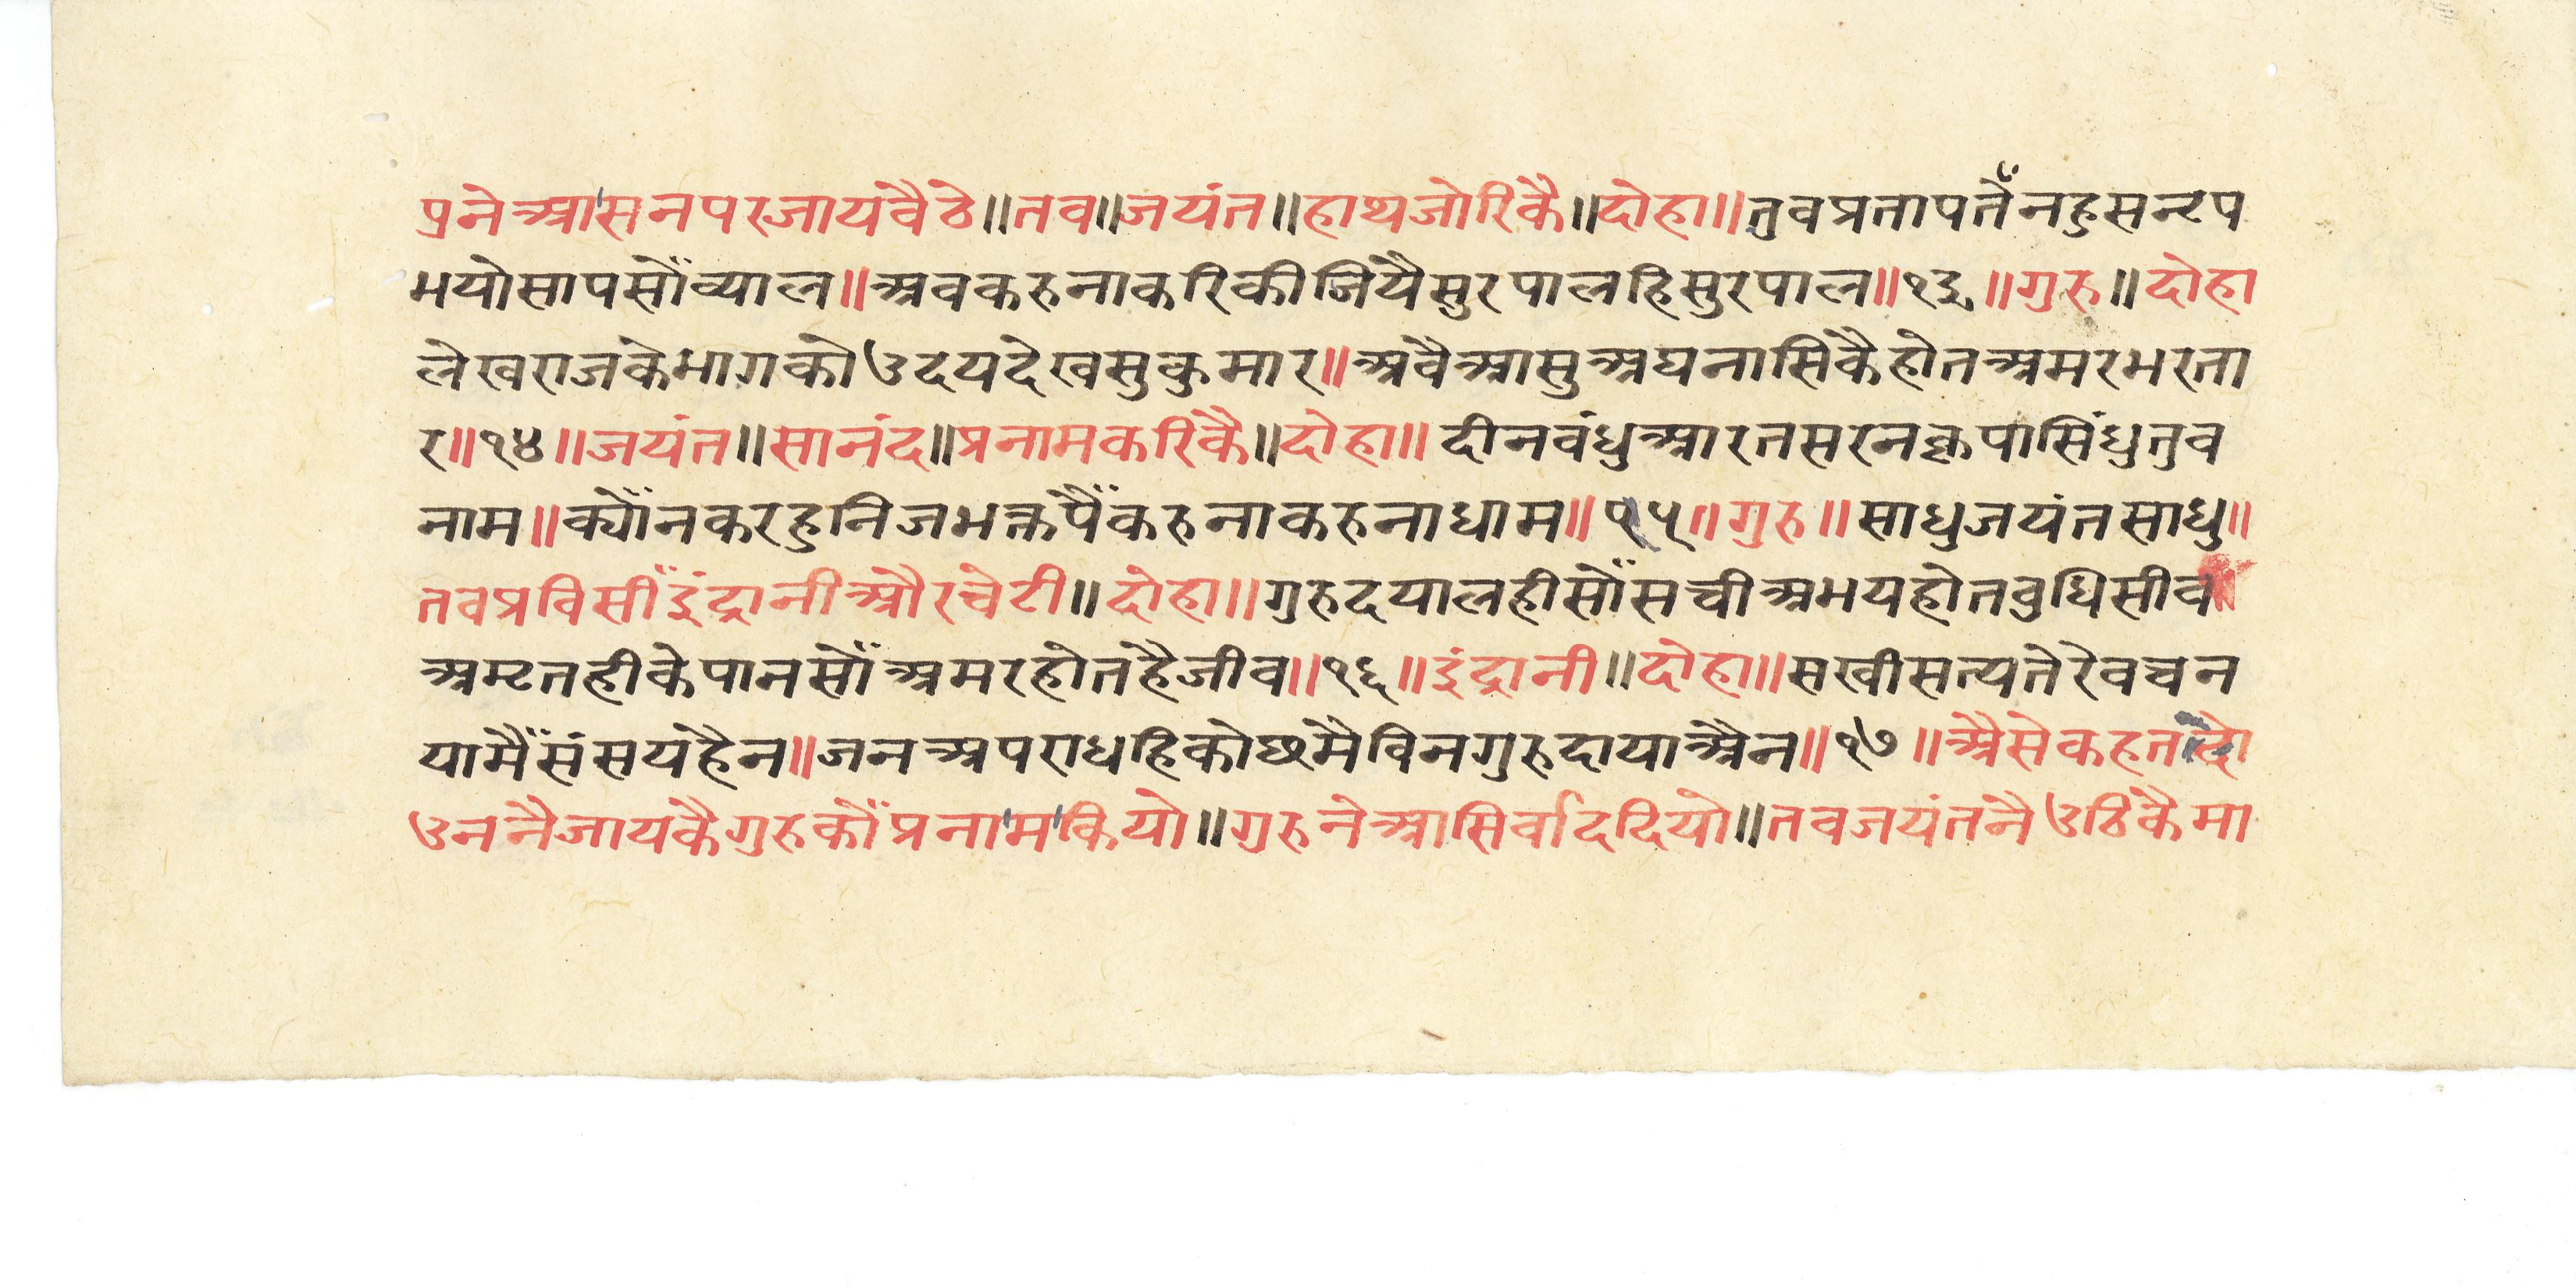 प्रने आसनपरजायंवैठे॥तव॥जयंत॥हाथजोरिकै॥दोहा॥तुवप्रतापतैँनहुसनृप
भयोसापसौँव्याल॥अवकरुनाकरिकीजियैसुरपालहिसुरपाल॥१३॥गुरु॥दोहा
लेखराजकेभागकोउदयदेखसुकुमार॥अवैआसुअघनासिकैहोतअमरभरता
र॥१४॥जयंत॥सानंद॥प्रनामकरिकै॥दोहा॥दीनवंधुआरतसरनकृपासिंधुतुव
नाम॥क्यौँनकरहुनिजभक्तपैँकरुनाकरुनाधाम॥१५॥गुरु॥साधुजयंतसाधु॥
तवप्रविसीँइंद्रानीऔरचेटी॥दोहा॥गुरुदयालहीसौँसचीअभयहोतवुधिसीव॥
अमृतहीकेपानसौँअमरहोतहैजीव॥१६॥इंद्रानी॥दोहा॥सखीसत्यतेरेवचन
यामैँसंसयहैन॥जनअपराधहिकोछमैविनगुरुदायाऔन॥१७॥औसेकहत दो
उननैजायकैगुरुकौँप्रनामकियो॥गुरुनेआसिर्वाददियो॥तवजयंतनैउठिकैमा